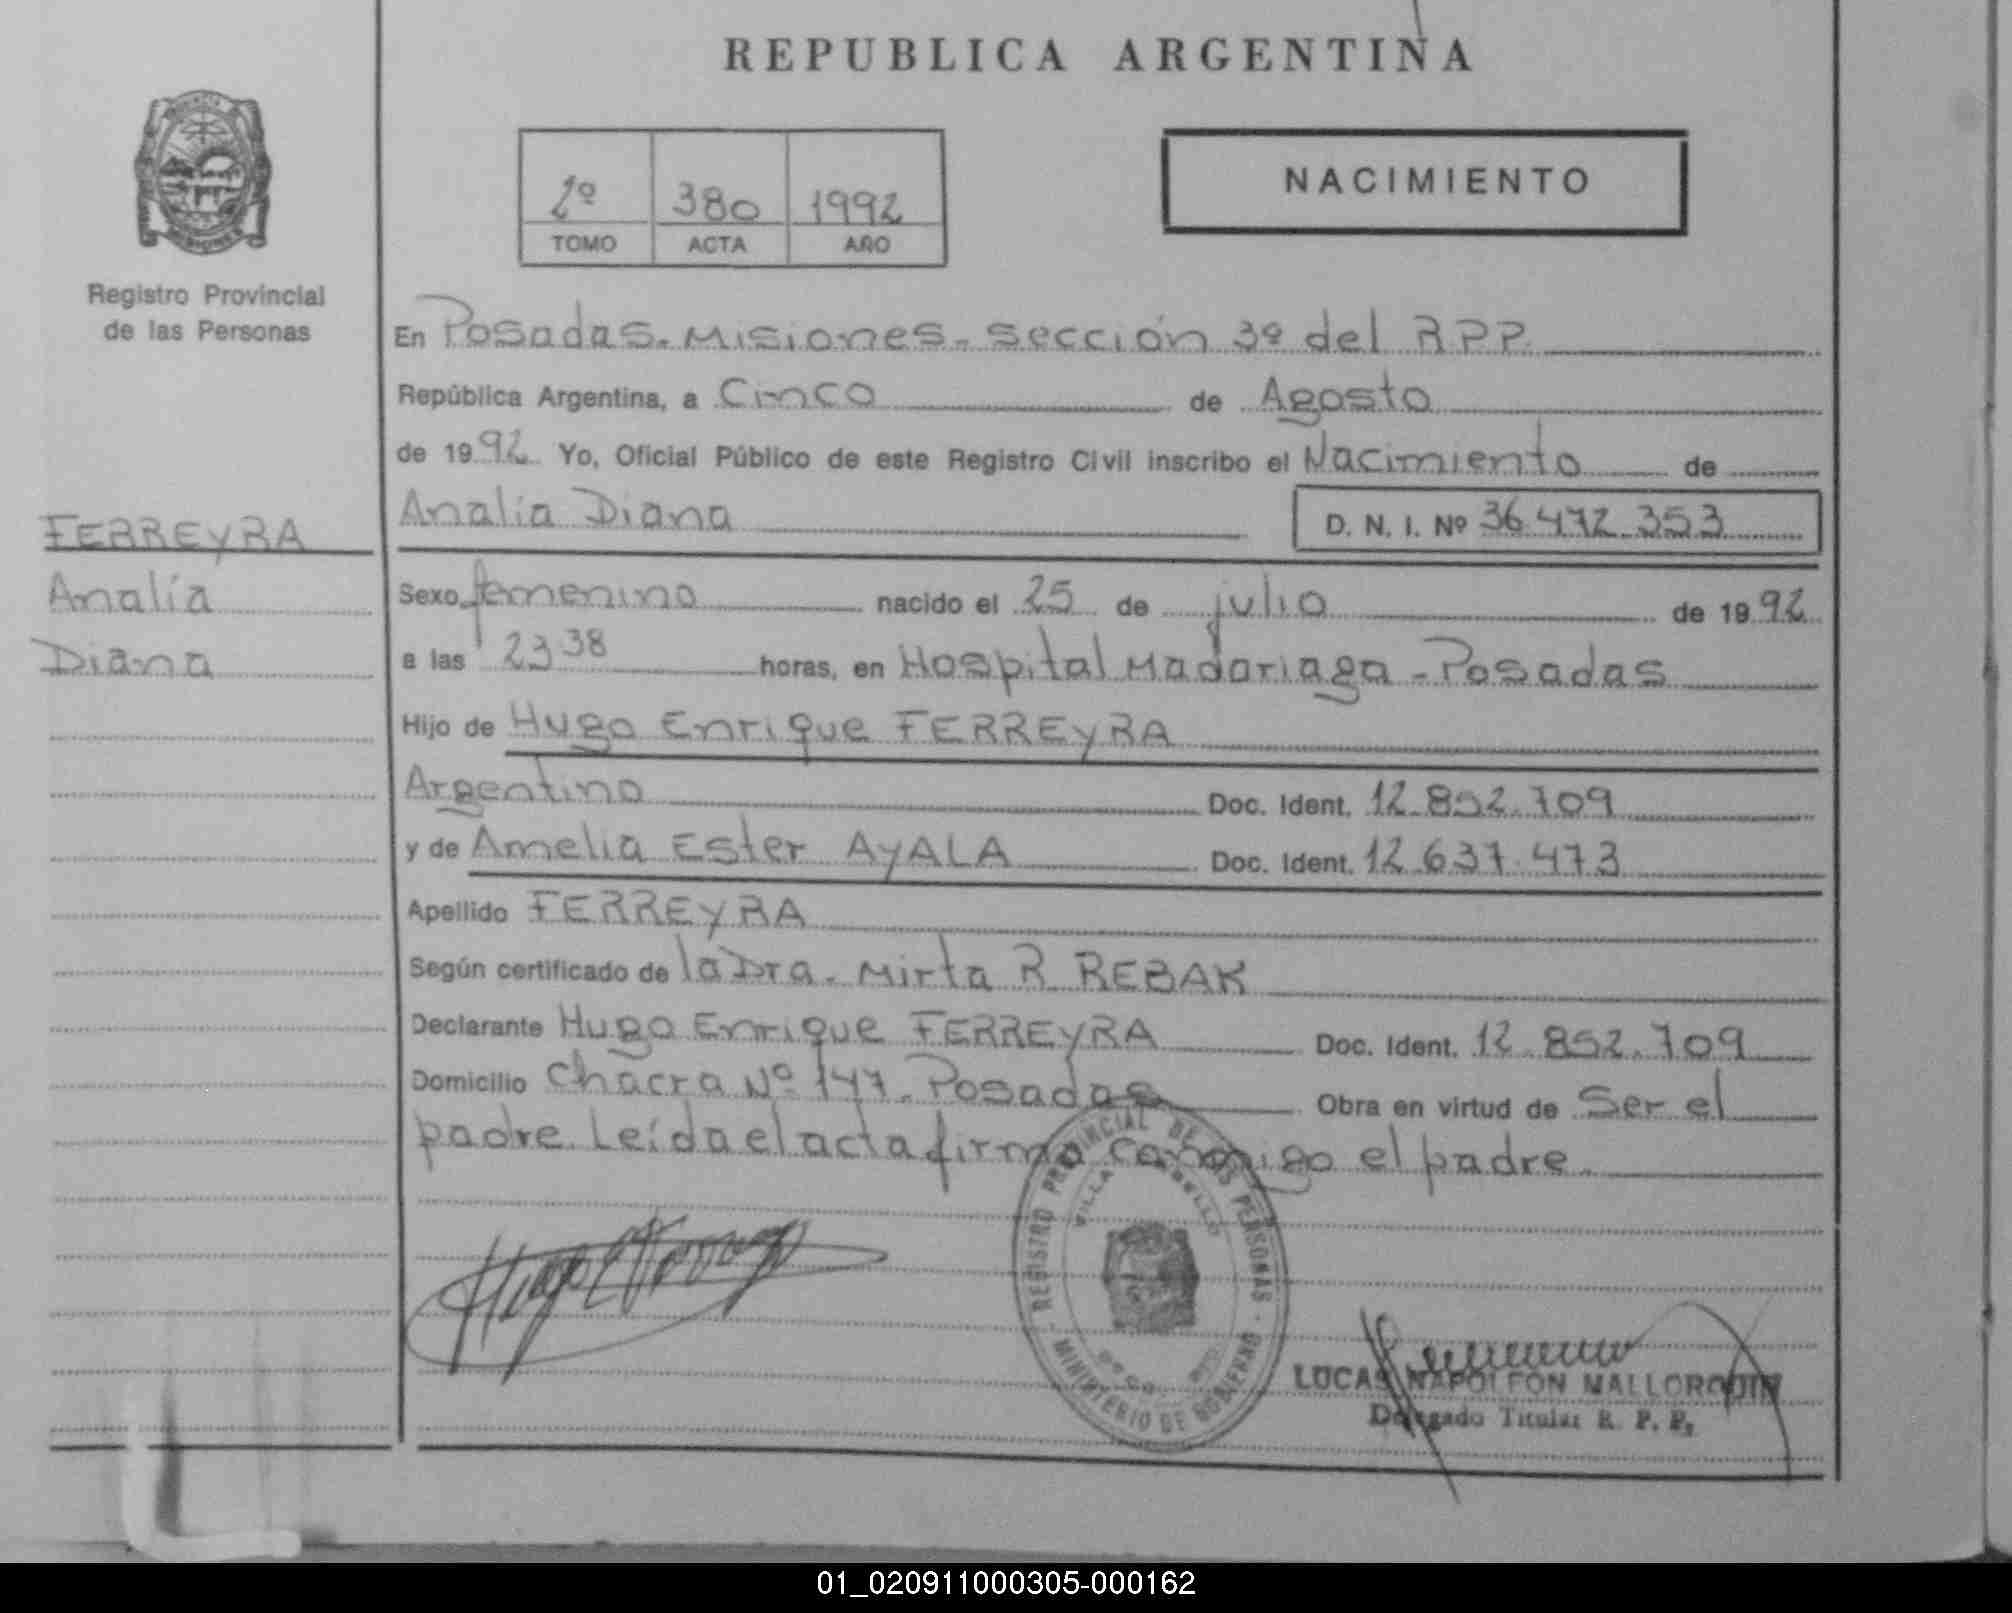 REPUBLICA ARGENTINA
2º 380 1992
TOMO ACTA AÑO
NACIMIENTO
MISIONES
Registro Provincial
de las Personas
FERREYRA
Analía
Diana
En Posadas. Misiones. Sección 3º del RPP.
República Argentina, a Cinco de Agosto
de 1992 Yo, Oficial Público de este Registro Civil inscribo el Nacimiento de
Analía Diana D. N. I. Nº 36.472.353
Sexo femenino nacido el 25 de julio de 1992
a las 23 38 horas, en Hospital Madariaga - Posadas
Hijo de Hugo Enrique FERREYRA
Argentino Doc. Ident. 12.852.709
y de Amelia Ester AyALA Doc. Ident. 12.637.473
Apellido FERREYRA
Según certificado de la Dra. Mirta R REBAK
Declarante Hugo Enrique FERREYRA Doc. Ident. 12.852.709
Domicilio Chacra Nº 147. Posadas Obra en virtud de Ser el
padre. Leída el acta firma conmigo el padre.
REGISTRO PROVINCIAL DE LAS PERSONAS
VILLA
MINISTERIO DE GOBIERNO
LUCAS NAPOLEON MALLORQUIN
Delegado Titular R. P. P.
01_020911000305-000162